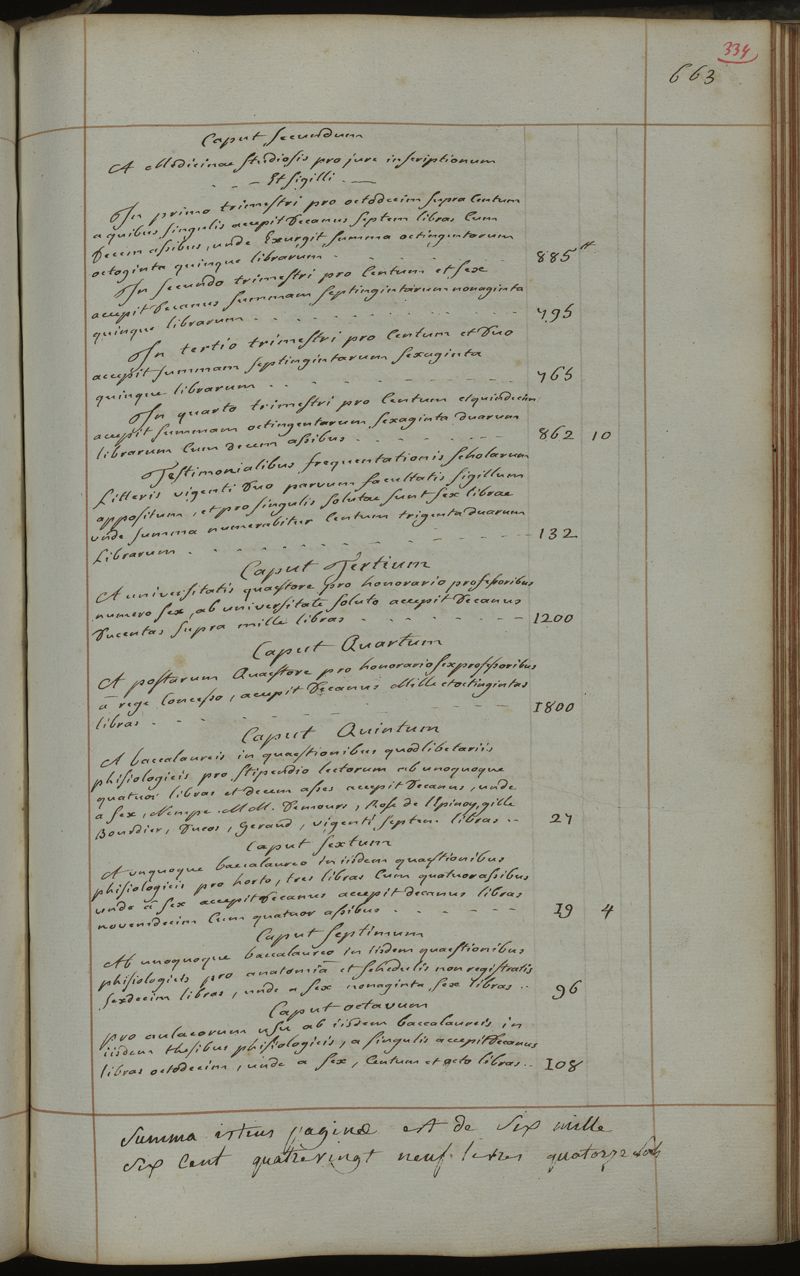 334
663
Caput secundum
A Medicinae studiosis pro jure inscriptionum
- - - Et sigilli. -
In primo trimestri pro octodecim supra Centum
a quibus singulis accepit Decanus septem libras Cum
Decem assibus, unde Exurgit summa octingentarum
octoginta quinque librarum - - - - - 885 ₶
In secundo trimestri pro Centum et sex
accepit Decanus summam septingintarum nonaginta
quinque librarum - - - - - - - 795
In tertio trimestri pro Centum et Duo
accepit summam septingintarum sexaginta
quinque librarum - - - - - - - 765
In quarto trimestri pro Centum et quindecim
accepit summam octingentarum sexaginta duarum
librarum Cum decem assibus - - - - - 862 10
Testimonialibus frequentationis scholarum
Litteris vigenti Duo parvum facultatis sigillum
appositum, et pro singulis solutae sunt sex librae
unde summa numerabitur Centum trigenta Duarum
Librarum - - - - - - - - 132
Caput Tertium
A universitatis quaestore pro honorario professoribus
numero sex, ab universitate soluto accepit Decanus
Ducentas supra mille libras - - - - - 1200
Caput Quartum
A postarum Quaestore pro honorario sex professoribus
a rege Concesso, accepit Decanus Mille et octingintas
libras - - - - - - - - 1800
Caput Quintum
A baccalaureis in quaestionibus quodlibetariis
phisiologicis pro stipendio lectorum ab unoquoque
quatuor libras et decem asses accepit Decanus, unde
a sex, Nempe M.M. Demours, Rose de l'Epinoy, gille
Bourdier, Ducos, Geraud, vigenti septem libras - - 27
Caput sextum
A unquoque baccalaureo in iisdem quaestionibus
phisiologicis pro horto, tres libras Cum quatuor assibus
unde a sex accepit Decanus accepit decanus libras
novemdecim Cum quatuor assibus - - - - - 19 4
Caput septimum
Ab unoquoque baccalaureo in iisdem quaestionibus
phisiologicis pro anatomiâ et schedulis non registratis
sexdecim libras, unde a sex nonaginta sex libras - - 96
Caput octavum
pro aulaeorum usu ab iisdem baccalaureis in
iisdem thesibus phisiologicis, a singulis accepit Decanus
libras octodecim, unde a sex, Centum et octo libras - - 108
Summa istius paginae est de six mille
six Cent quatrevingt neuf livres quatorze sols